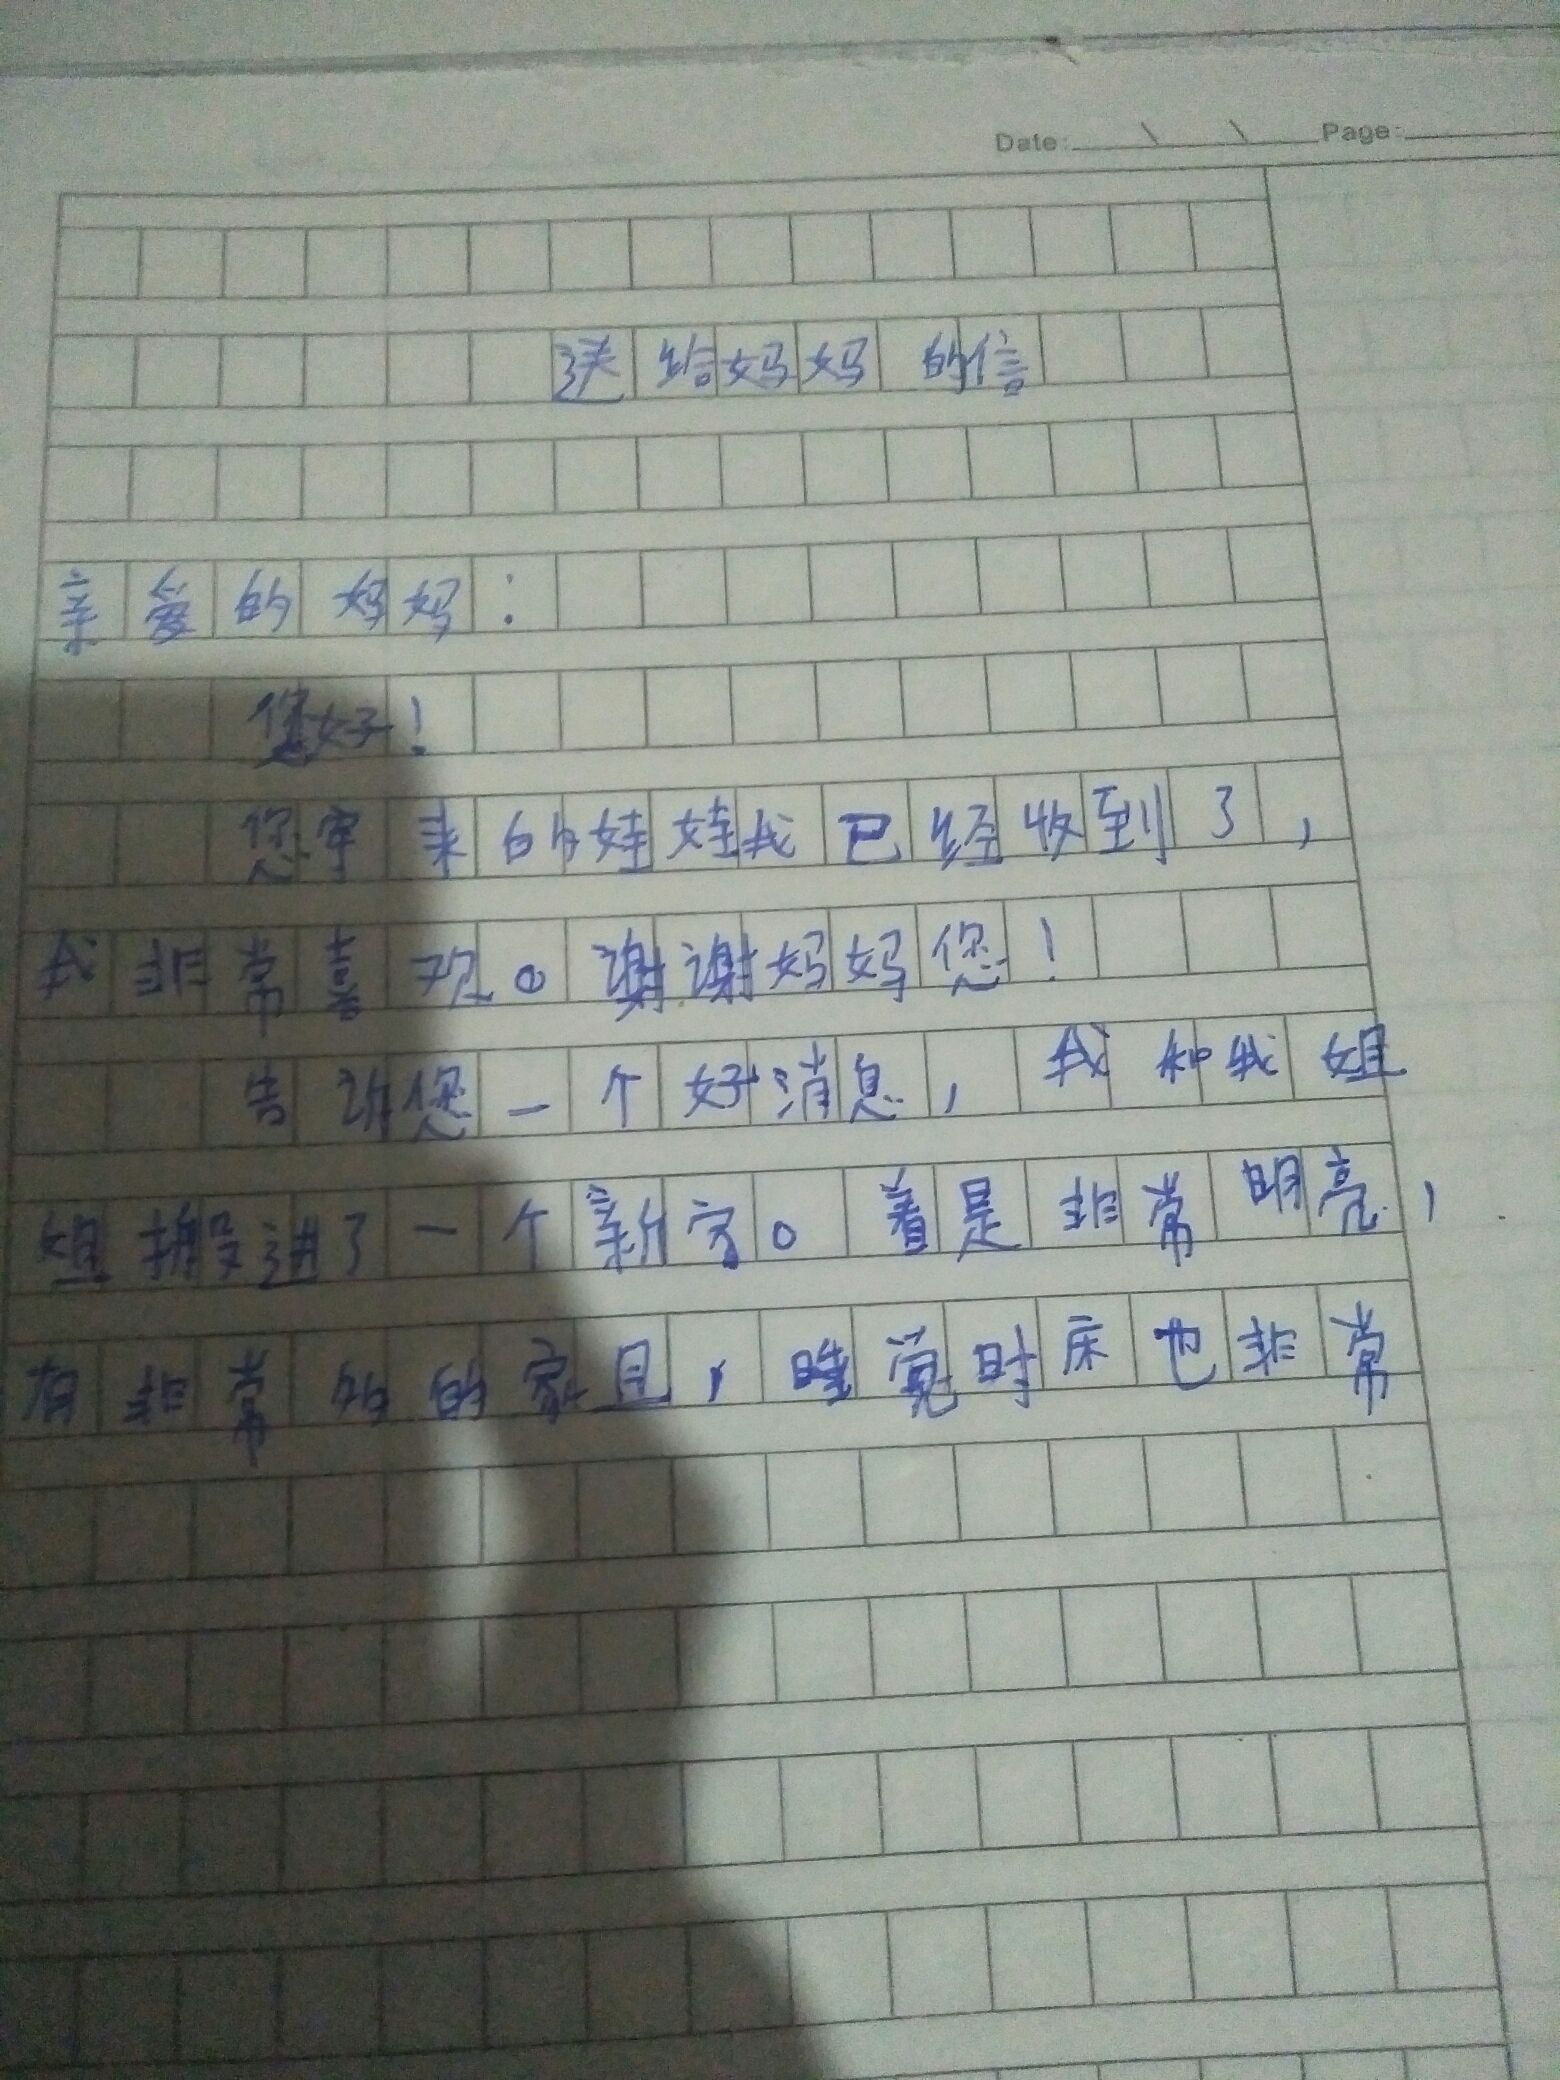 Date: Page:
送给妈妈的信
亲爱的妈妈：
您好！
您寄来的娃娃我已经收到了，
我非常喜欢。谢谢妈妈您！
告诉您一个好消息，我和我姐
姐搬进了一个新家。着是非常明亮，
有非常的的家具，睡觉时床也非常